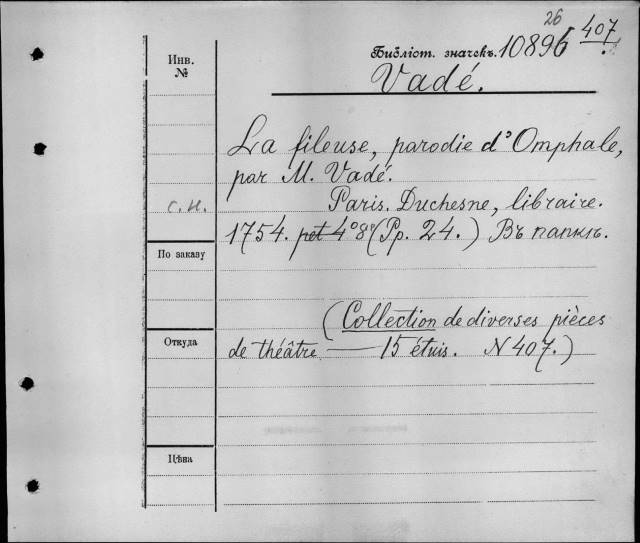 26
407
Библіот. значекъ. 10896
Vadé.
Инв.
№
La fileuse, parodie d'Omphale,
par M. Vadé.
Paris. Duchesne, libraire.
с.н.
1754. pet 4° 8° (Pp. 24.) Въ папкѣ.
По заказу
(Collection de diverses pièces
Откуда
de théâtre — 15 étuis. N 407.)
Цѣна